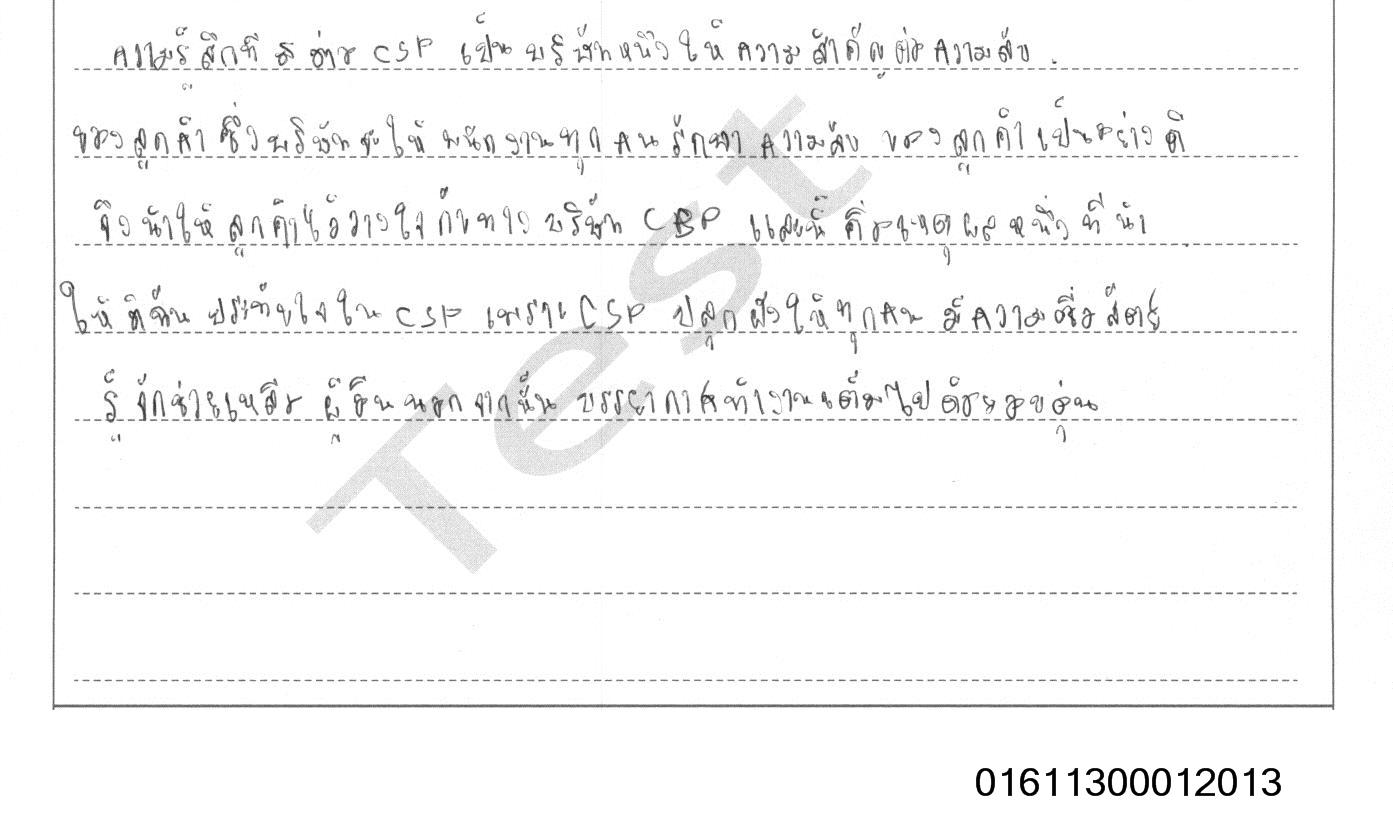 ความรู้สึกที่มีต่อ CSP เป็นบริษัทหนึ่งให้ความสำคัญต่อความลับ
ของลูกค้า ซึ่งบริษัทจะให้พนักงานทุกคนรักษาความลับ ของลูกค้าเป็นอย่างดี
จึงนำให้ลูกค้าไว้วางใจกับทางบริษัท CSP และนี้คือเหตุผลหนึ่งที่นำ
ให้ดิฉันประทับใจใน CSP เพราะ CSP ปลูกฝังให้ทุกคน มีความซื่อสัตย์
รู้จักช่วยเหลือ ผู้อื่นนอกจากนั้น บรรยากาศทำงานเต็มไปด้วยอบอุ่น
Test
01611300012013